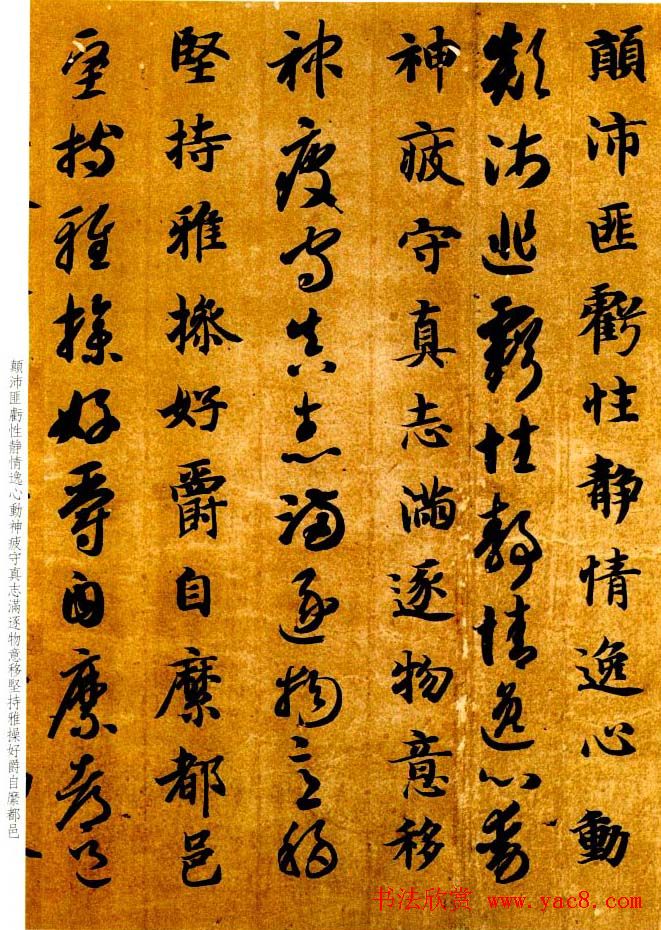 顛沛匪虧性静情逸心動
顛沛匪虧性静情逸心動
神疲守真志滿逐物意移
神疲守真志滿逐物意移
堅持雅操好爵自縻都邑
堅持雅操好爵自縻都邑
顛沛匪虧性静情逸心動神疲守真志滿逐物意移堅持雅操好爵自縻都邑
书法欣赏 www.yac8.com